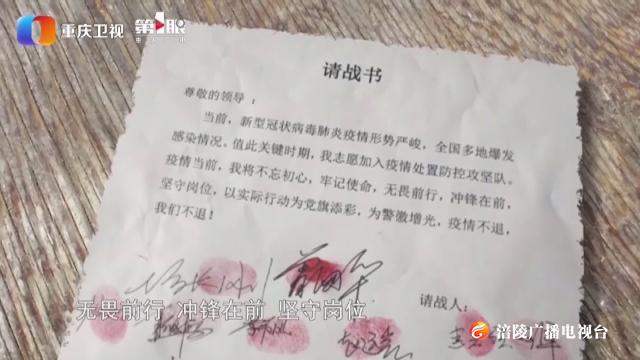 重庆卫视 第1眼
请战书
尊敬的领导：
当前，新型冠状病毒肺炎疫情形势严峻，全国多地爆发
感染情况。值此关键时期，我志愿加入疫情处置防控攻坚队。
疫情当前，我将不忘初心，牢记使命，无畏前行，冲锋在前，
坚守岗位，以实际行动为党旗添彩，为警徽增光，疫情不退，
我们不退！
请战人：
无畏前行 冲锋在前 坚守岗位
涪陵广播电视台